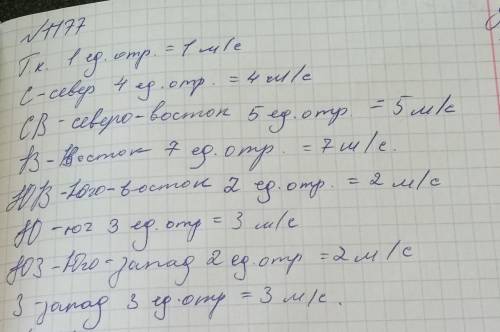 №1177
Т.к. 1 ед.отр. = 1 м/с
С-север 4 ед.отр. = 4 м/с
СВ-северо-восток 5 ед.отр. = 5 м/с
В-Восток 7 ед.отр. = 7 м/с.
ЮВ-Юго-восток 2 ед.отр = 2 м/с
Ю-юг 3 ед.отр = 3 м/с
ЮЗ-Юго-запад 2 ед.отр = 2 м/с
З-запад 3 ед.отр = 3 м/с.